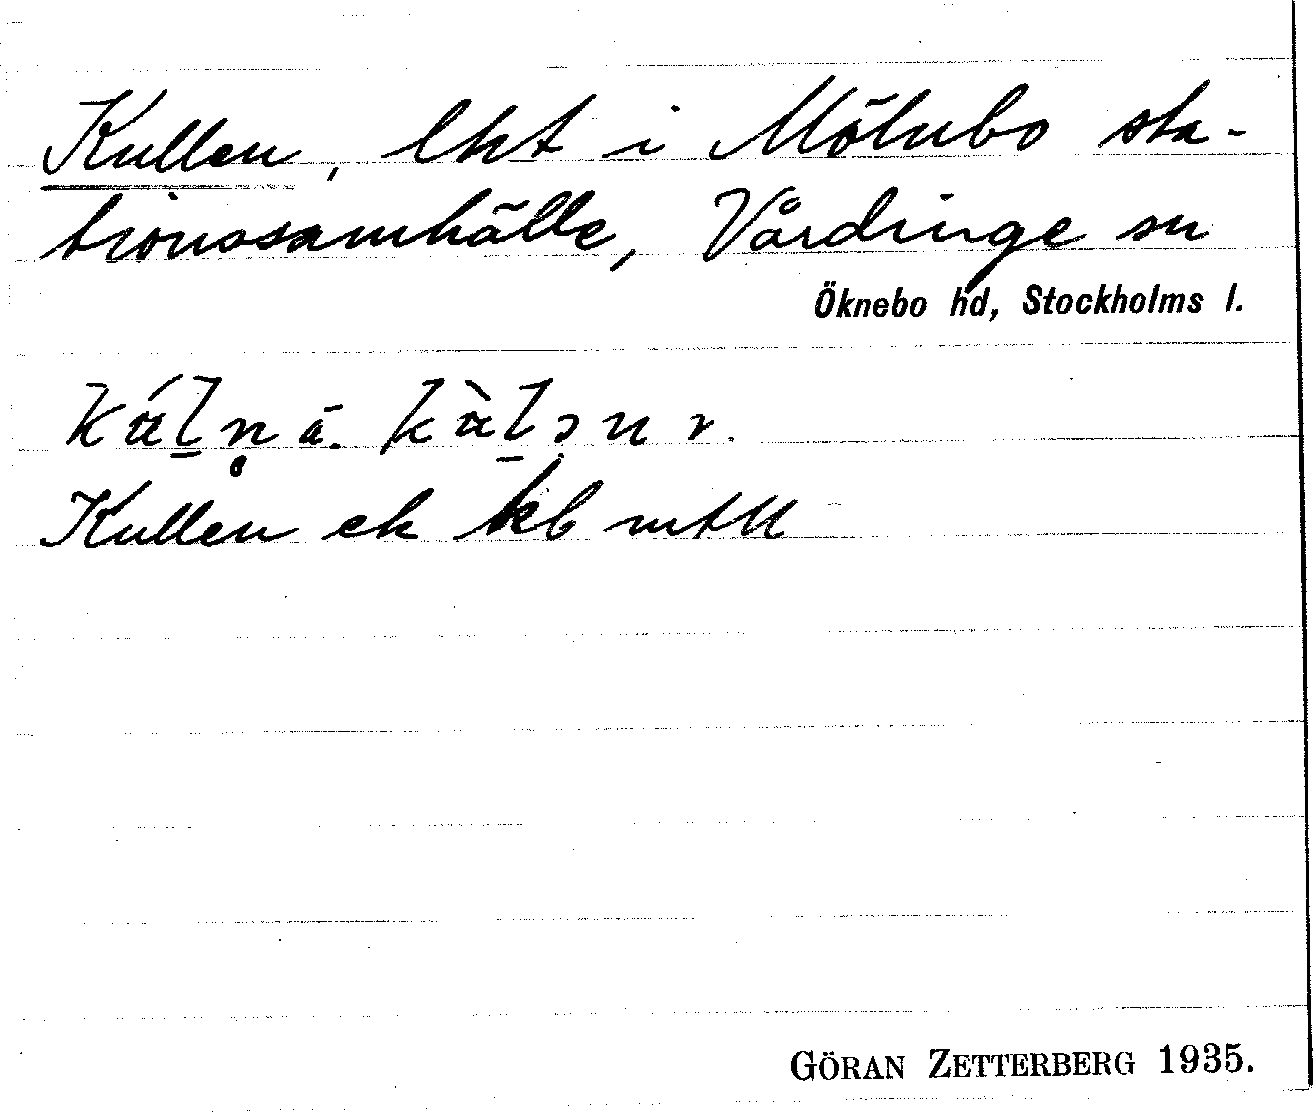 Kullen, lht i Mölnbo sta-
tionssamhälle, Vårdinge sn
Öknebo hd, Stockholms l.
Kullen ek kb mtll
GÖRAN ZETTERBERG 1935.